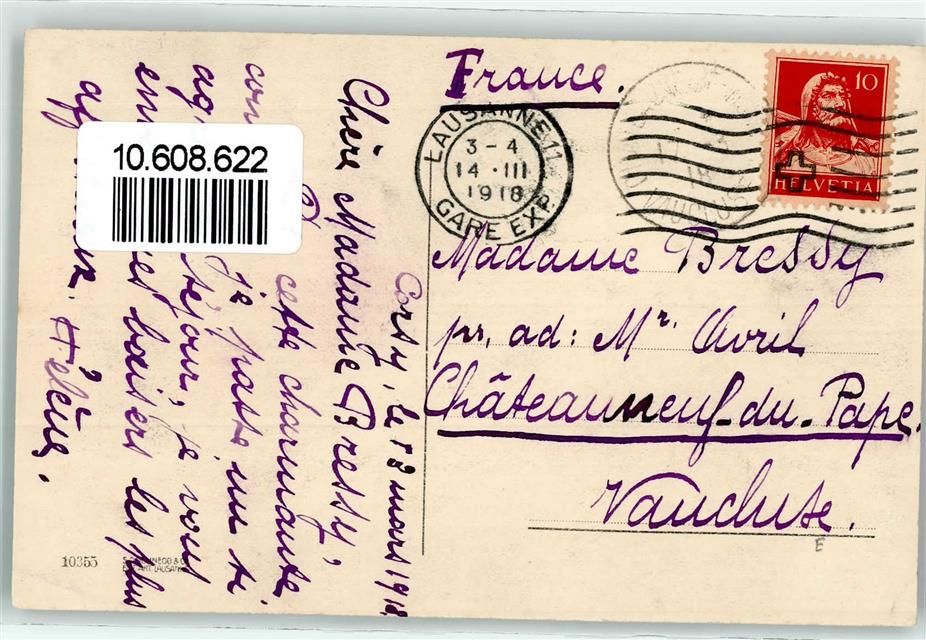 France.
10
HELVETIA
LAUSANNE 11
3 - 4
14 · III
1918
GARE EXP.
VAUCLUSE
Madame Bressy
pr. ad: Mr. Avril
Châteauneuf-du-Pape.
Vaucluse.
E
Corsy, le 12 mars 1918
Chère Madame Bressy,
cette charmante
je passe un si
séjour, je vous
baisers les plus
Hélène.
10.608.622
10355